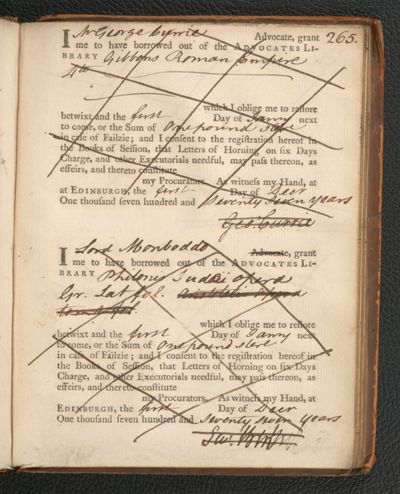 265.
I Mr George Currie Advocate, grant
me to have borrowed out of the ADVOCATES LI-
BRARY Gibbons Roman Empire
4to
which I oblige me to restore
betwixt and the first Day of Janry next
to come, or the Sum of One pound Sterg
in case of Failzie; and I consent to the registration hereof in
the Books of Session, that Letters of Horning on six Days
Charge, and other Executorials needful, may pass thereon, as
effeirs, and thereto constitute
my Procurators. As witness my Hand, at
at EDINBURGH, the first Day of Decr
One thousand seven hundred and Seventy Seven years
Geo: Currie
I Lord Monboddo Advocate, grant
me to have borrowed out of the ADVOCATES LI-
BRARY Philonis Judæi opera
Gr. Lat fol. opera
which I oblige me to restore
betwixt and the first Day of Janry next
to come, or the Sum of One pound Sterg
in case of Failzie; and I consent to the registration hereof in
the Books of Session, that Letters of Horning on six Days
Charge, and other Executorials needful, may pass thereon, as
effeirs, and thereto constitute
my Procurators. As witness my Hand, at
EDINBURGH, the first Day of Decr
One thousand seven hundred and Seventy seven years